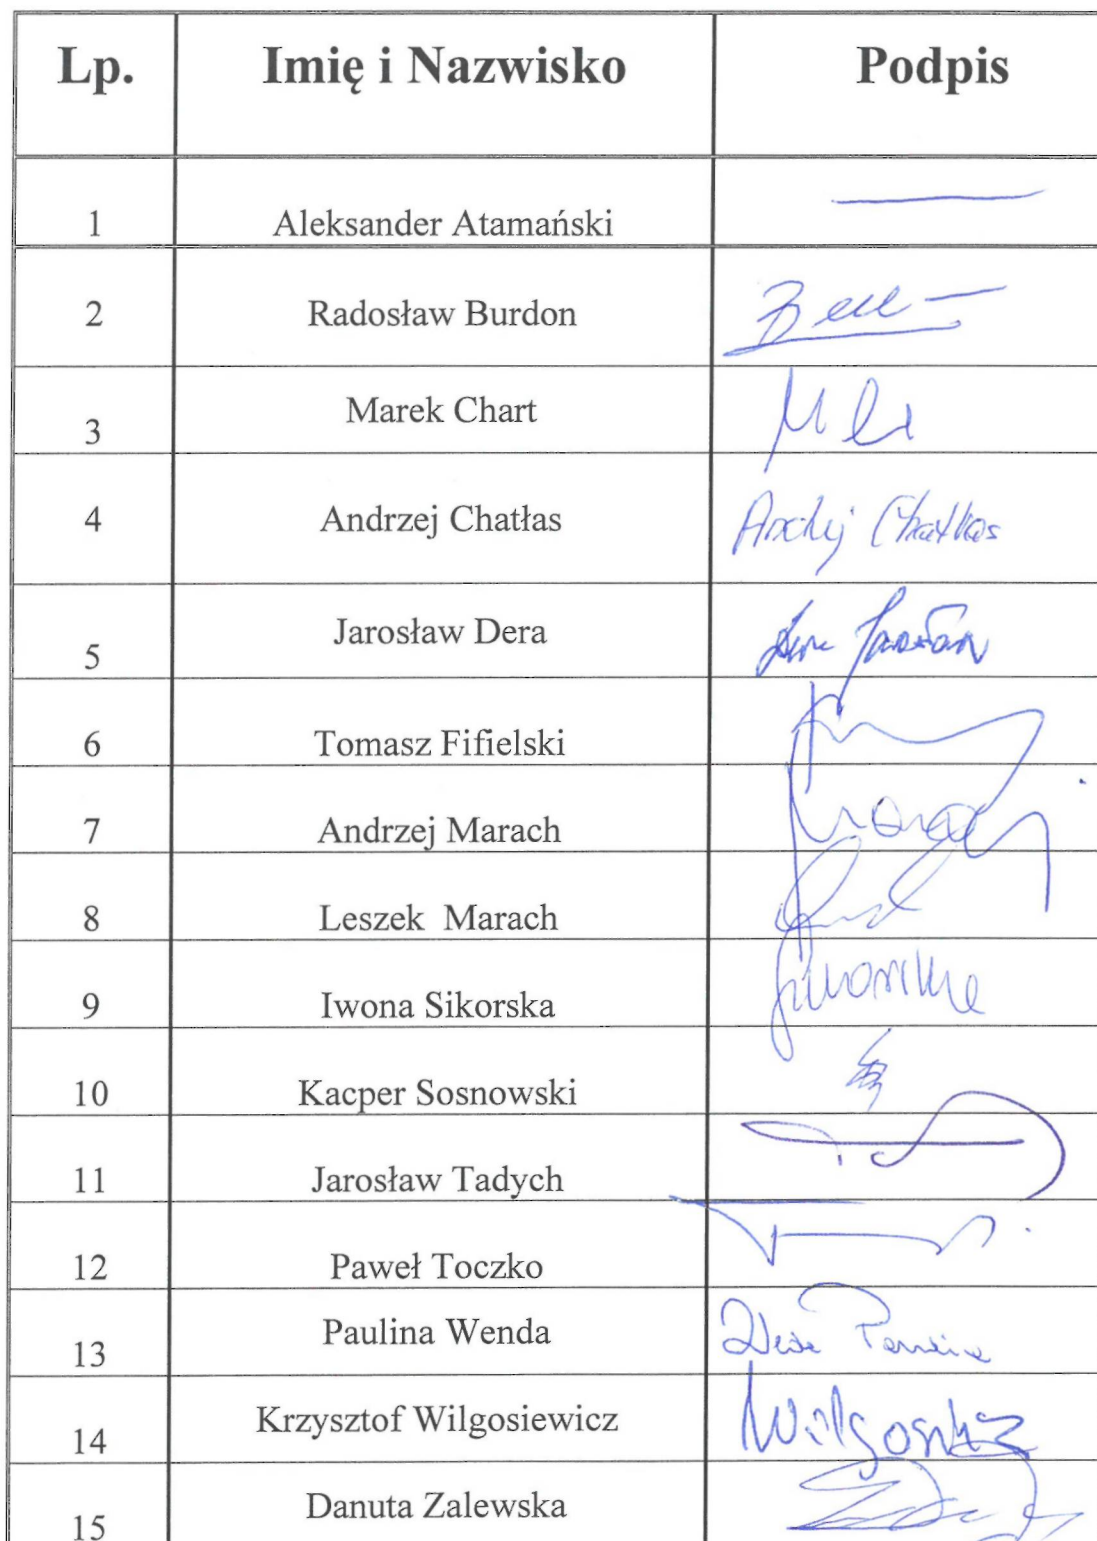 Lp. Imię i Nazwisko Podpis
1 Aleksander Atamański
2 Radosław Burdon
3 Marek Chart
4 Andrzej Chatłas Andrzej Chatłas
5 Jarosław Dera
6 Tomasz Fifielski
7 Andrzej Marach
8 Leszek Marach
9 Iwona Sikorska
10 Kacper Sosnowski
11 Jarosław Tadych
12 Paweł Toczko
13 Paulina Wenda
14 Krzysztof Wilgosiewicz
15 Danuta Zalewska